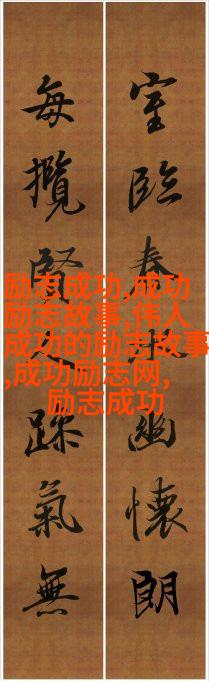 室臨春幽懷朗
每攬賢踈氣無
励志成功,成功
励志故事,伟人
成功的励志故事
,成功励志网,
励志成功